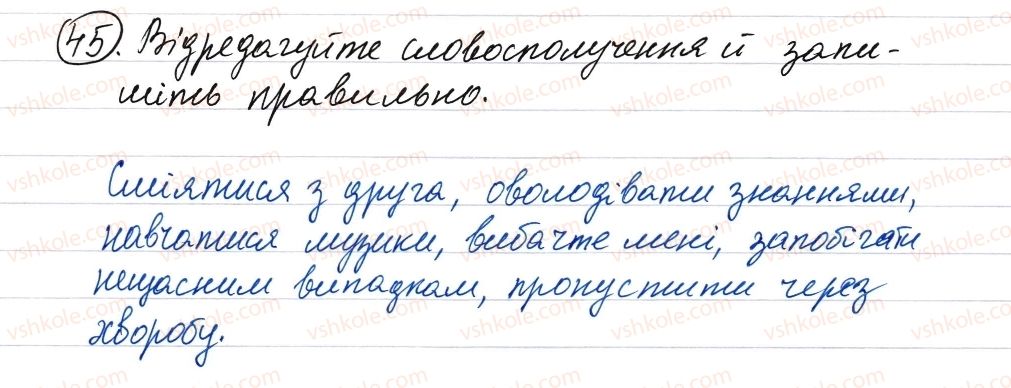 45. Відредагуйте словосполучення й запи-
шіть правильно.
Сміятися з друга, оволодівати знаннями,
навчатися музики, вибачте мені, запобігати
нещасним випадкам, пропустити через
хворобу.